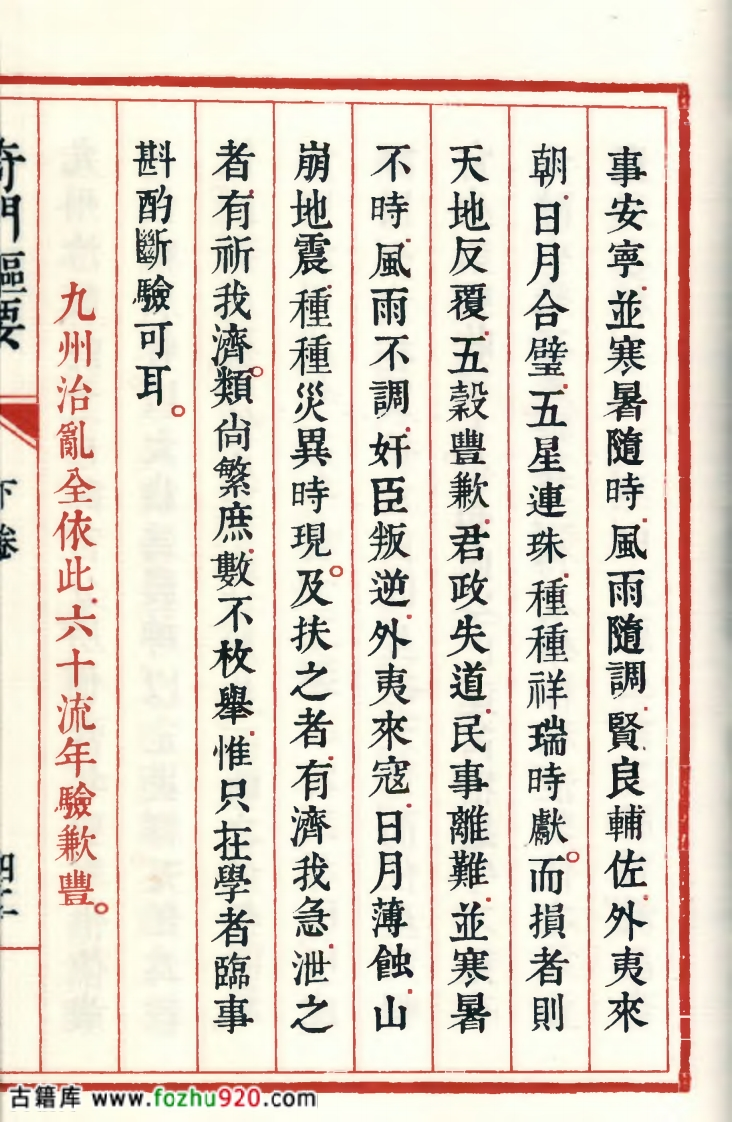 事安寧並寒暑隨時風雨隨調賢良輔佐外夷來
朝日月合璧五星連珠種種祥瑞時獻。而損者則
天地反覆五穀豐歉君政失道民事離難並寒暑
不時風雨不調奸臣叛逆外夷來寇日月薄蝕山
崩地震種種災異時現。及扶之者有濟我急泄之
者有祈我濟。類尙繁庶數不枚舉惟只在學者臨事
斟酌斷驗可耳。
九州治亂全依此六十流年驗歉豐。
奇門樞要
下卷
古籍库 www.fozhu920.com